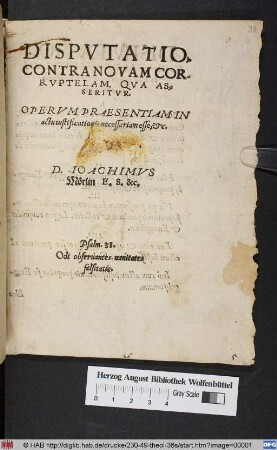 DISPVTATIO.
CONTRA NOVAM COR-
RVPTELAM, QVA AS-
SERITVR.
OPERVM PRAESENTIAM IN
actu iustificationis necessariam esse, &c.
D. IOACHIMVS
Mörlin E. S. &c.
Psalm. 31.
Odi obseruantes uanitates
falsitatis.
Herzog August Bibliothek Wolfenbüttel
Gray Scale
cm
0 1 2 3 4
© HAB http://diglib.hab.de/drucke/230-49-theol-36s/start.htm?image=00001
DFG